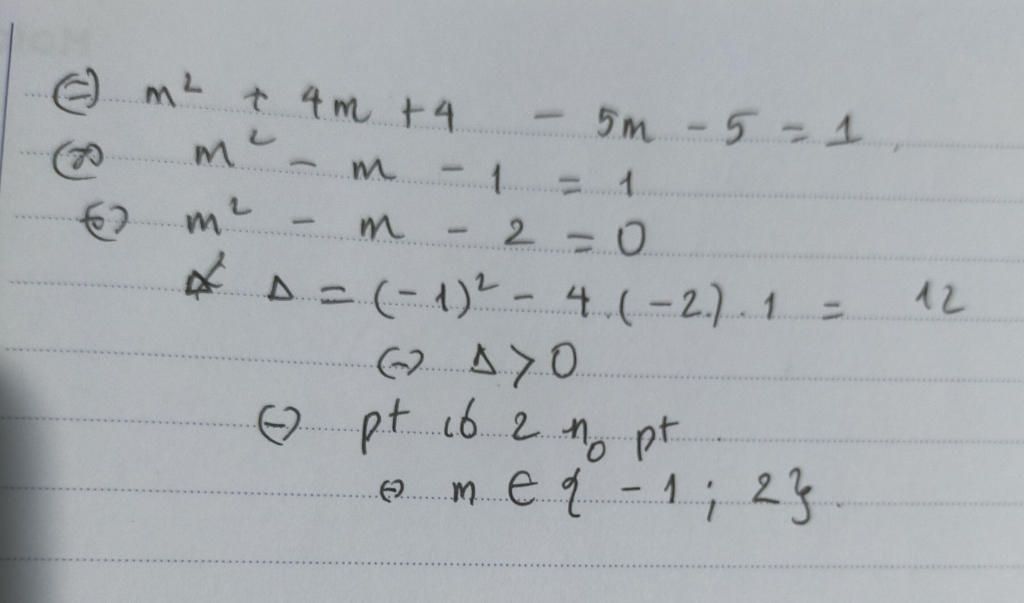 ⇔ m² + 4m + 4 - 5m - 5 = 1
⇔ m² - m - 1 = 1
⇔ m² - m - 2 = 0
Δ = (-1)² - 4.(-2).1 = 12
⇔ Δ > 0
⇔ pt có 2 n₀ pt
⇔ m ∈ { -1 ; 2}.